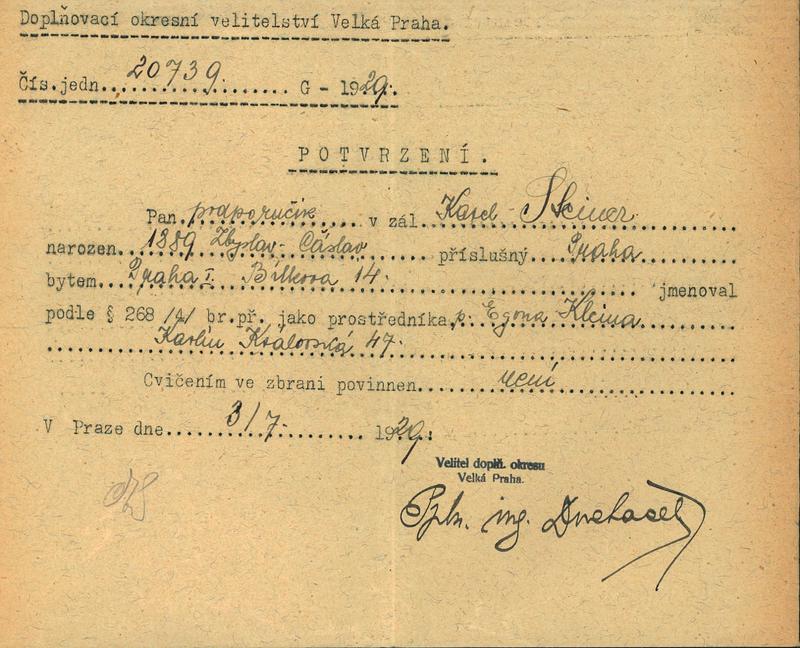 Doplňovací okresní velitelství Velká Praha.
Čís.jedn. 20739. G - 1929.
POTVRZENÍ.
Pan podporučík v zál. Karel Steiner
narozen 1889 Zbyslav - Čáslav příslušný Praha
bytem Praha I. Bílkova 14. jmenoval
podle § 268 /4/ br.př. jako prostředníka p. Egona Kleina
Karlín Královská 47.
Cvičením ve zbrani povinnen není
V Praze dne 3/7. 1929.
Velitel doplň. okresu
Velká Praha.
Pplk. ing.